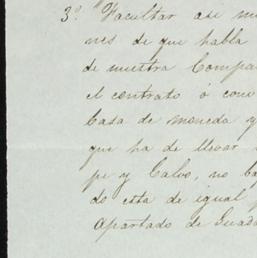 3º. Facultar asi mi
nes de que habla
de nuestra Compa
el contrato ó con
Casa de moneda y
que ha de llevar
pe y Calvo, no ba
do esta de igual
Apartado de Guad